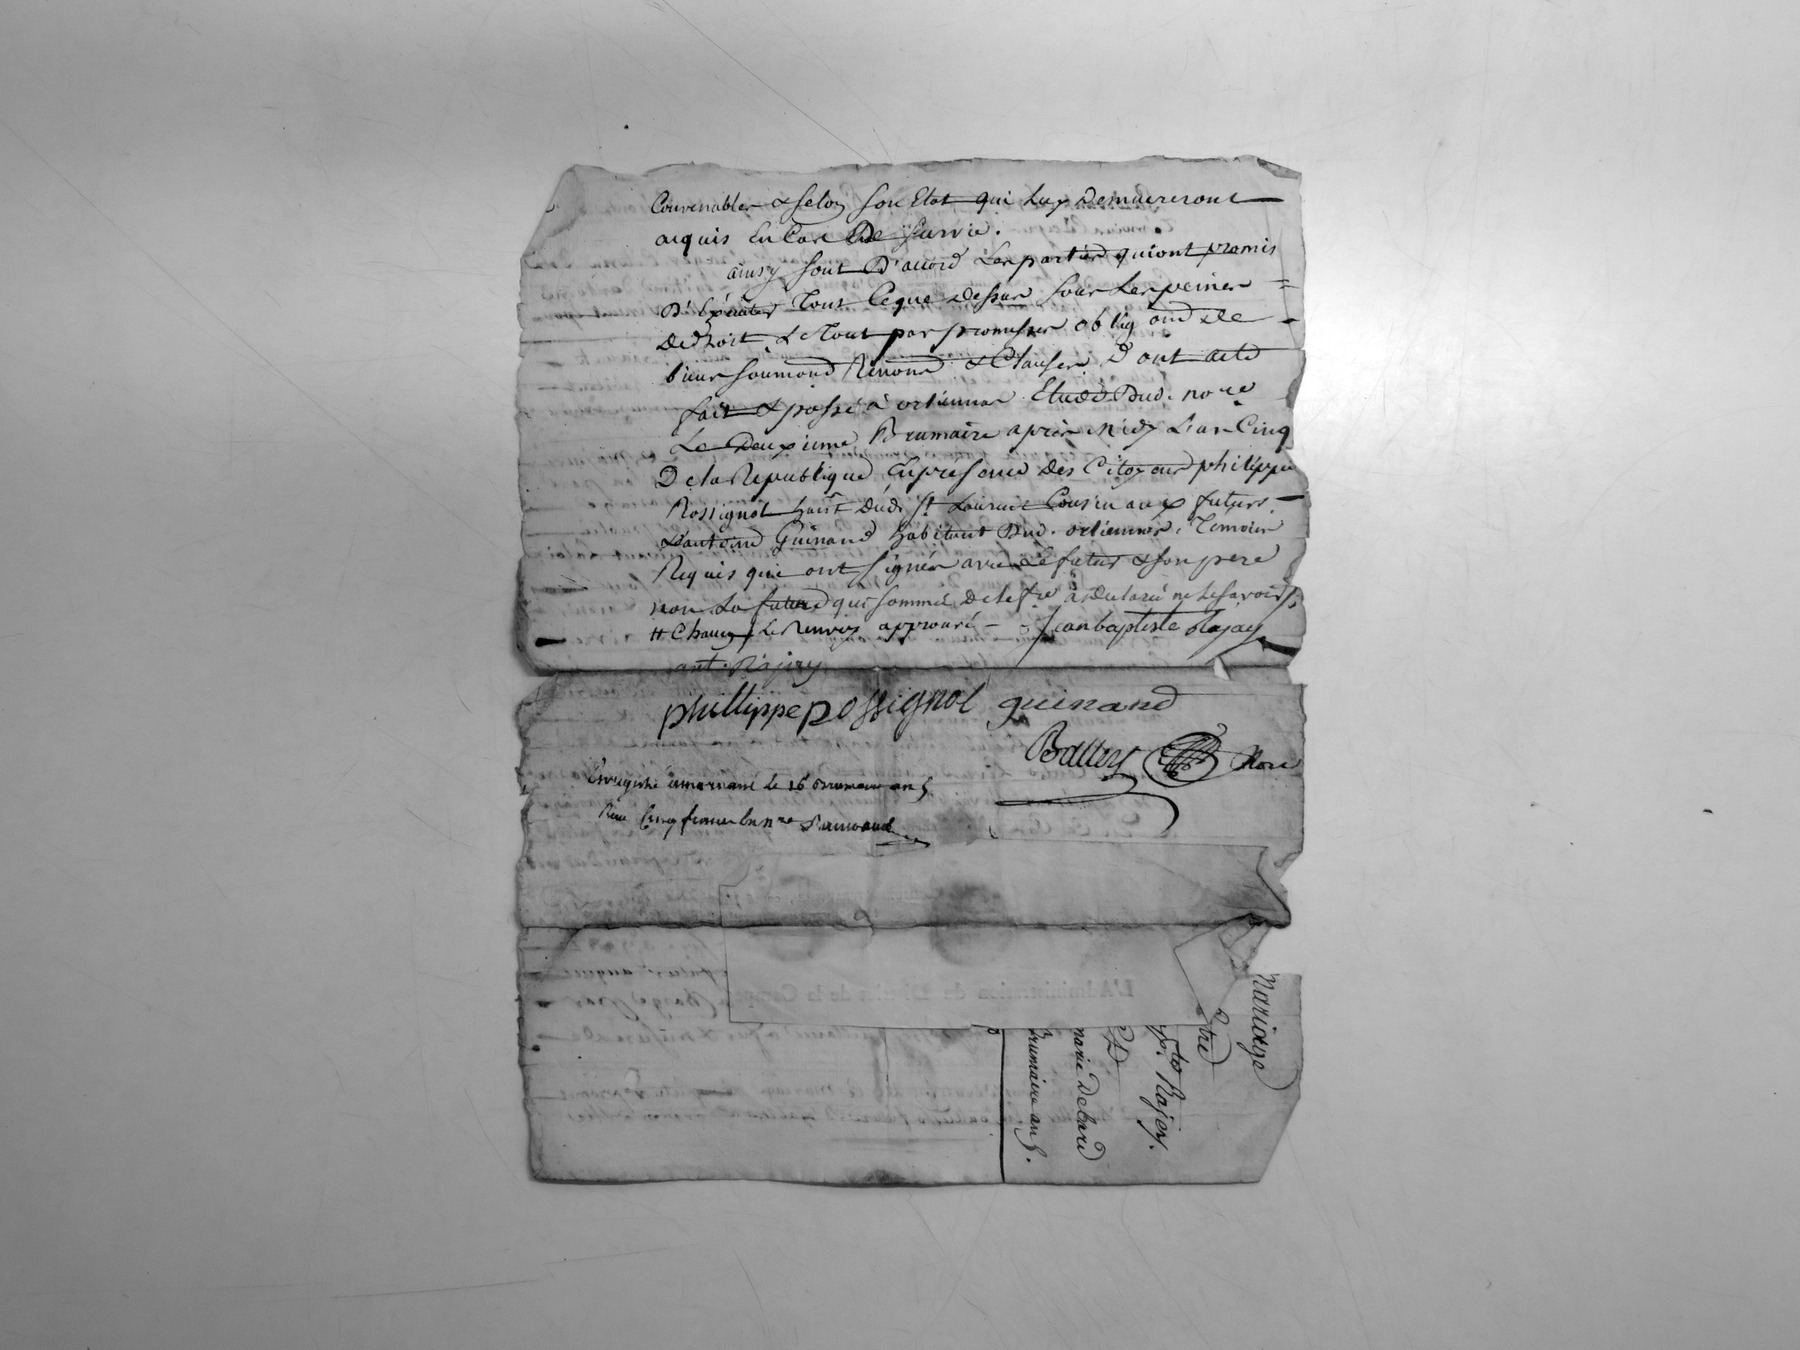 Convenables & selon son Etat qui luy demeureront
acquis en cas de survie.
ainsy sont d'accord les parties qui ont promis
d'Exécuter tout ce que dessus sous les peines =
de droit. Le tout par promesses oblig ons de
biens soumons Renons & Clauses. Dont acte
fait & passé à ortiennas Etude dud. nore
Le Deuxieme Brumaire après midy L'an Cinq
De la Republique En présence des Citoyens philippe
Rossignol habt dud. St Laurent Cousin aux futurs
& antoine Guinand habitant dud. ortiennas, Temoins
Requis qui ont signés avec Le futur & son pere
non La future qui sommée de le fre a déclaré ne le savoir
Le Renvoy approuvé - Jean baptiste Rajay
ant. Rajay
phillippe Rossignol guinand
nore
Enregistré le 16 Brumaire an 5
Reçu Cinq francs
L'Administration du District de la Campagne
Mariage
Entre
Bte Rajey.
Et
marie
Brumaire an 5.